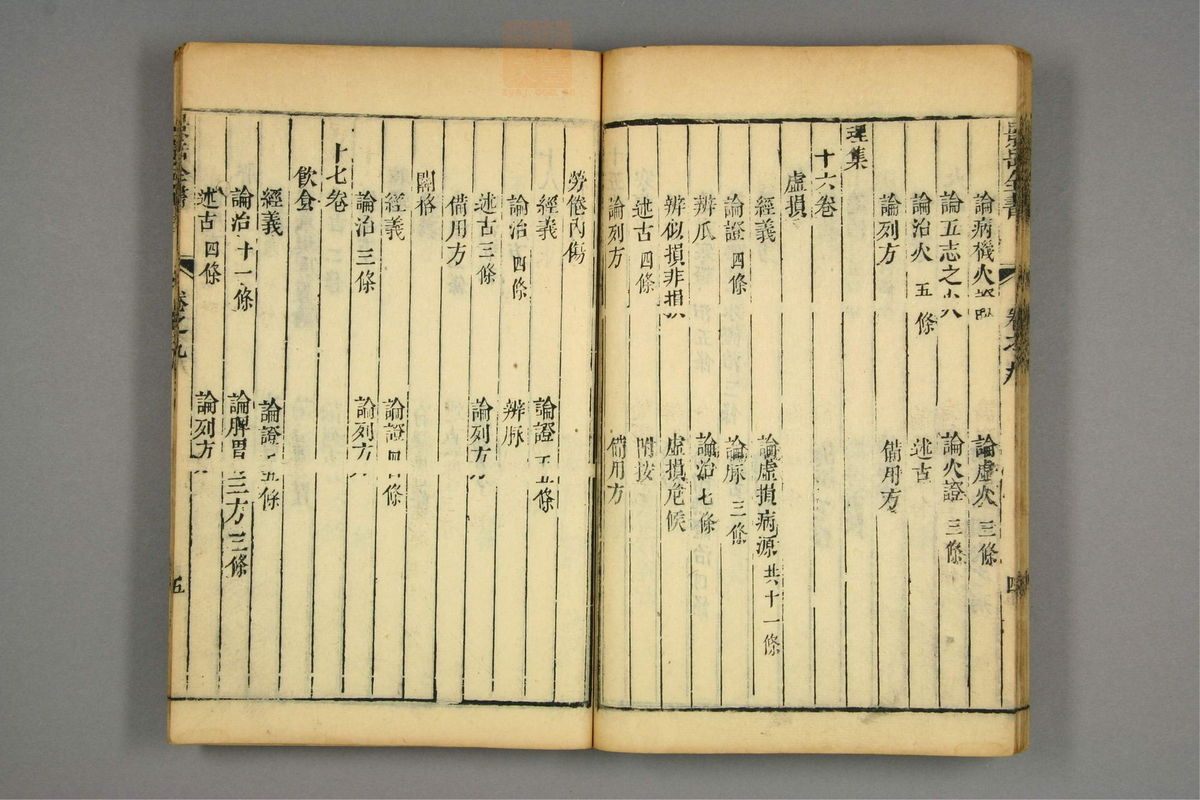 景岳全書 卷之九 四
論病機火證 論虛火 三條
論五志之火 論火證 三條
論治火 五條 述古
論列方 備用方
理集
十六卷
虛損
經義 論虛損病源 共十一條
論證 四條 論脉 三條
辨爪 論治 七條
辨似損非損 虛損危候
述古 四條 附按
論列方 備用方
勞倦內傷
經義 論證 五條
論治 四條 辨脉
述古 三條 論列方
備用方
關格
經義 論證 四條
論治 三條 論列方
十七卷
飲食
經義 論證 五條
論治 十一條 論脾胃三方 三條
述古 四條 論列方
景岳全書 卷之九 五